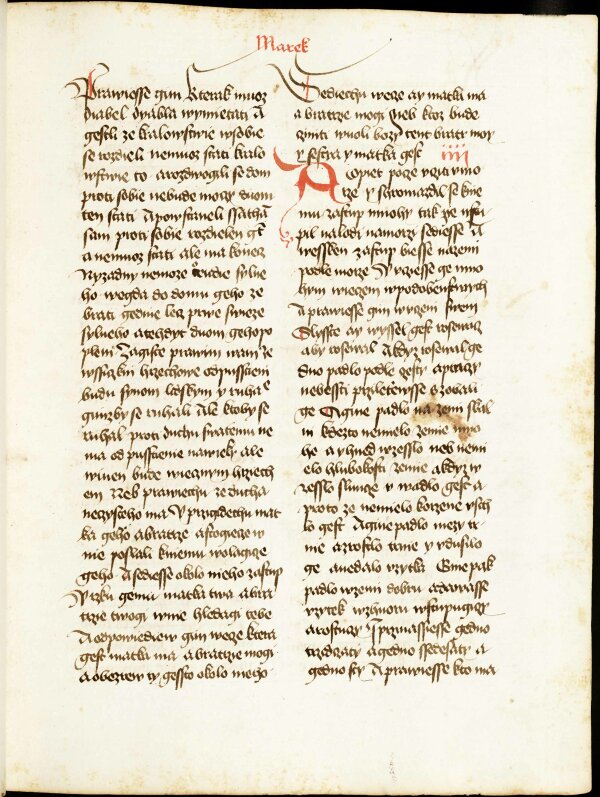 Marek
Prawiesse gim kterak muoz
diabel dyabla wymietati A
gestli ze kralowstwie wsobie
se rozdieli nemuoz stati kralo
wstwie to arozdwogili se dom
proti sobie nebude moczy duom
ten stati Apowstaneli ssathā
sam proti sobie rozdielen gt
a nemuoz stati ale ma konecz
Nyzadny nemoze osudie sylne
ho wegda do domu geho ze
brati gedine lecz prwe sweze
sylneho atehdyt duom geho po
pleni Zagiste prawim wam ze
wssiczkni hrzechowe odpusstieni
budu synom lidskym y ruhaē
gimizby se ruhali Ale ktoby se
ruhal proti duchu swatemu ne
ma odpusstienie nawieky ale
winen bude wiecznym hrziech
em Neb prawiechu ze ducha
neczysteho ma Y przigidechu mat
ka geho abratrze astogiecze w
nie poslali kniemu wolagicze
geho Asediesse okolo nieho zastup
Y rzku gemu matka twa abra
trzie twogi wnie hledagi tebe
Aodpowiediew gim wece ktera
gest matka ma abratrzie mogi
aobezrzew ty gessto okolo nieho
Sediechu wece ay matka ma
a bratrze mogi Neb ktoz bude
cziniti wuoli bozi tent bratr moy
y sestra y matka gest
iiii
A opiet pocze uczi vmo
rze y shromazdil se knie
mu zastup mnohy tak ze wstu
pil na lodi namorzy sediesse A
wessken zastup biesse nazemi
podle morze A vcziesse ge mno
hym wieczem wpodobenstwiech
Aprawiesse gim wuczeni swem
Slysste ay wyssel gest rosewacz
aby rosiewal Akdyz rosiewal ge
dno padlo podle czesty aptaczy
nebessti prziletewsse zobali
ge Agine padlo na zemi skal
nu kdezto nemielo zemie mno
ho a yhned wzesslo neb nemi
elo hlubokosti zemie akdyz w
zesslo slunce y wadlo gest a
proto ze nemielo korzene vsch
lo gest Agine padlo mezy tr
nie azrostlo trnie y vdusilo
ge anedalo vzytka Gine pak
padlo wzemi dobru adawasse
vzytek wzhuoru wstupugiczy
arostuczy Y przinassiesse gedno
trzidczaty agedno ssedesaty a
gedno sty Aprawiesse kto ma